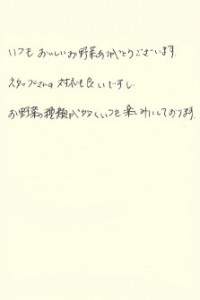 いつも おいしいお野菜ありがとうございます.
スタッフさんの 対応も良いですし
お野菜の種類が少なくいつも楽しみにしております.